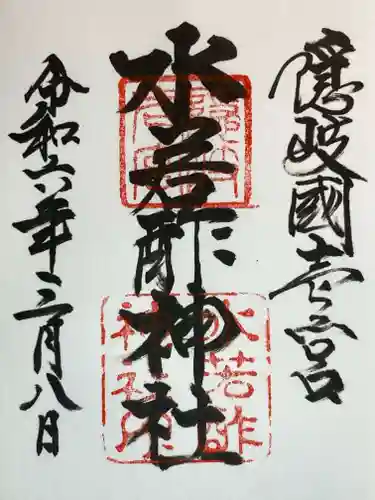 隠岐國壱宮
水若酢神社
令和六年三月八日
水若酢神社印